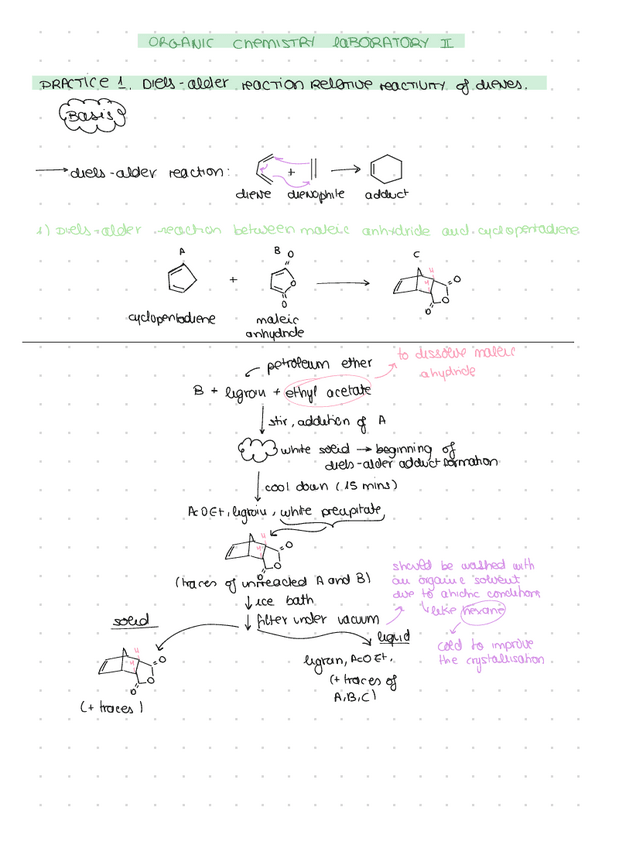 ORGANIC CHEMISTRY LABORATORY II
PRACTICE 1. DIELS-alder reaction RELATIVE REACTIVITY of dienes.
Basis
diels-alder reaction:
+
diene dienophile adduct
1) DIELS-alder reaction between maleic anhydride and cyclopentadiene
A B C
O
O
O
+
H
H
O
O
O
cyclopentadiene maleic
anhydride
petroleum ether
to dissolve maleic
ahydride
B + ligroin + ethyl acetate
stir, addition of A
white solid → beginning of
diels-alder adduct formation
cool down (15 mins)
AcOEt, ligroin, white precipitate
H
H
O
O
O
(traces of unreacted A and B)
ice bath
filter under vacuum
should be washed with
an organic solvent
due to ahidric conditions
like hexane
cold to improve
the crystallisation
solid
liquid
H
H
O
O
O
(+ traces)
ligroin, AcOEt,
(+ traces of
A, B, C)